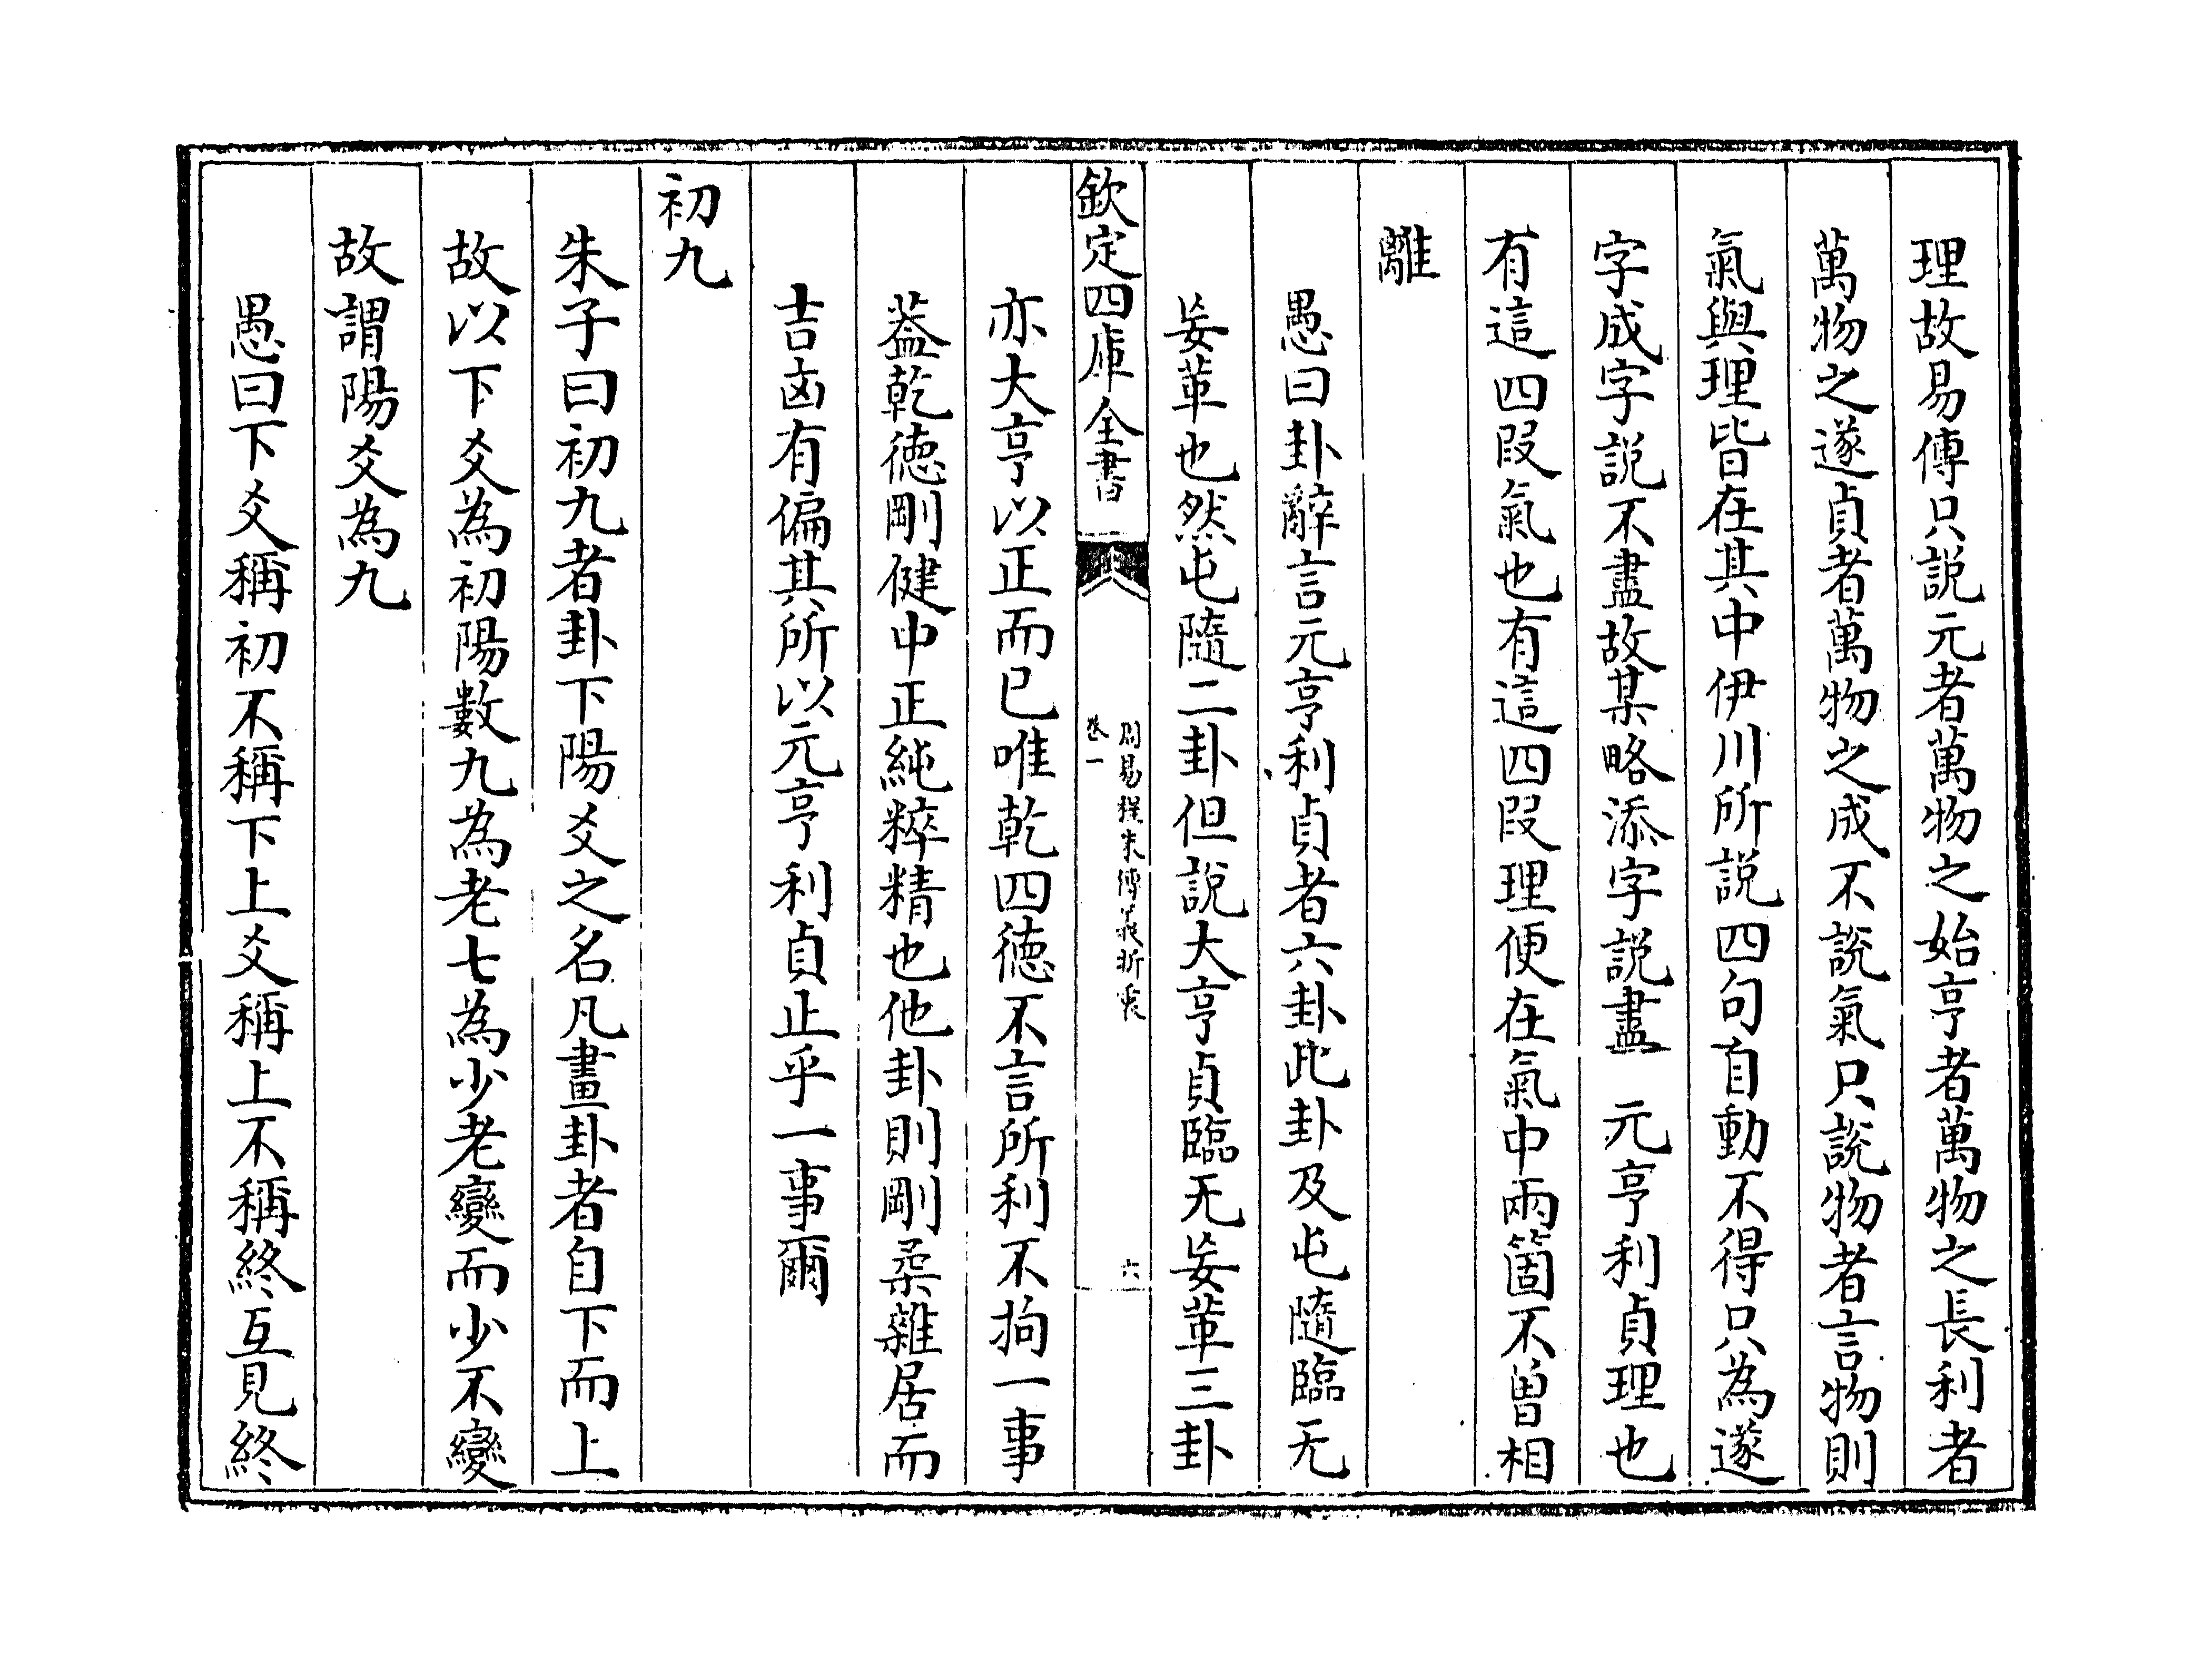 理故易傳只説元者萬物之始亨者萬物之長利者
萬物之遂貞者萬物之成不説氣只説物者言物則
氣與理皆在其中伊川所説四句自動不得只為遂
字成字説不盡故某略添字説盡 元亨利貞理也
有這四段氣也有這四段理便在氣中兩箇不曽相
離
愚曰卦辭言元亨利貞者六卦此卦及屯隨臨无
妄革也然屯隨二卦但説大亨貞臨无妄革三卦
欽定四庫全書
周易程朱傳義折衷
卷一
六
亦大亨以正而已唯乾四徳不言所利不拘一事
葢乾徳剛健中正純粹精也他卦則剛柔雜居而
吉凶有偏其所以元亨利貞止乎一事爾
初九
朱子曰初九者卦下陽爻之名凡畫卦者自下而上
故以下爻為初陽數九為老七為少老變而少不變
故謂陽爻為九
愚曰下爻稱初不稱下上爻稱上不稱終互見終